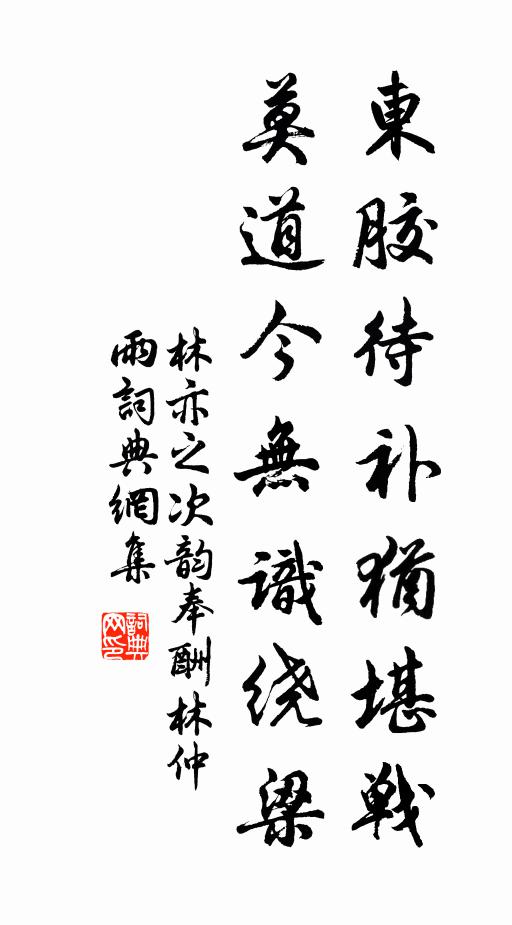 東胶待补猶堪戦
莫道今無識绕梁
林亦之次韵奉酬林仲
雨詞典網集
詞典网印